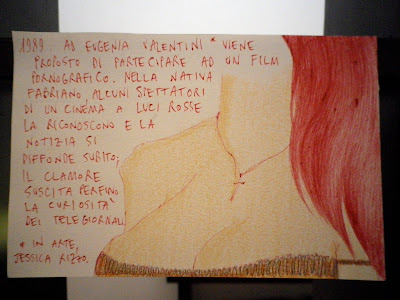 1989. AD EUGENIA VALENTINI * VIENE
PROPOSTO DI PARTECIPARE AD UN FILM
PORNOGRAFICO. NELLA NATIVA
FABRIANO, ALCUNI SPETTATORI
DI UN CINEMA A LUCI ROSSE
LA RICONOSCONO E LA
NOTIZIA SI
DIFFONDE SUBITO;
IL CLAMORE
SUSCITA PERFINO
LA CURIOSITÀ
DEI TELEGIORNALI.
* IN ARTE,
JESSICA RIZZO.